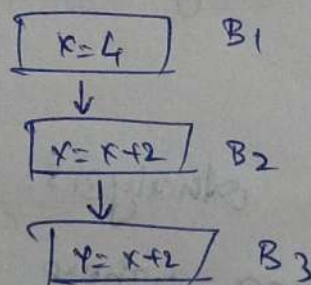 x=4 B1
x= x+2 B2
y= x+2 B3